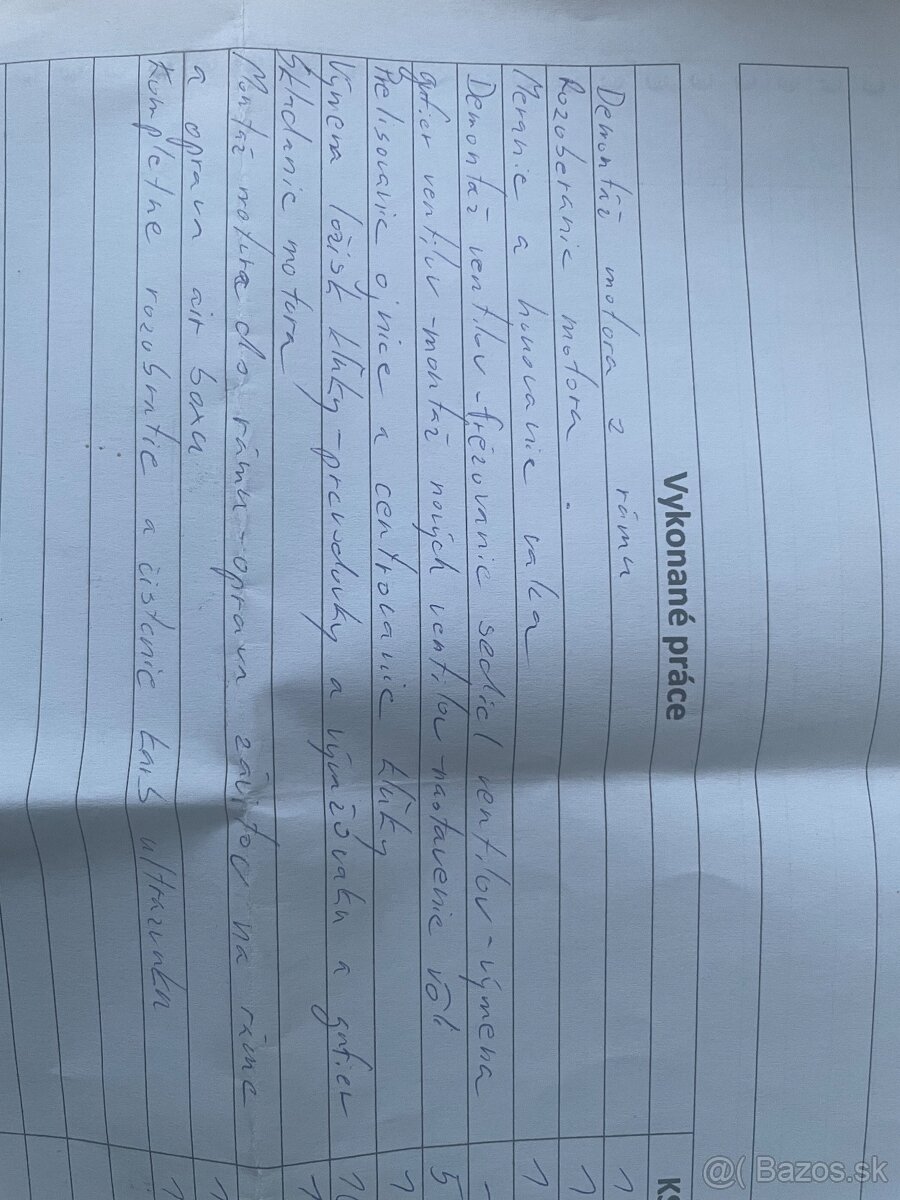 Vykonané práce
KS
Demontáž motora z rámu 1
Rozoberanie motora 1
Meranie a honovanie valca 1
Demontáž ventilov - frézovanie sediel ventilov - výmena -
gufier ventilov - montáž nových ventilov - nastavenie vôlí 5
Prelisovanie ojnice a centrovanie kľuky 1
Výmena ložísk kľuky - prevodovky a vyvažováku a gufier
Skladanie motora 1
Montáž motora do rámu - oprava závitov na ráme
a oprava air boxu 1
Kompletné rozobratie a čistenie karb ultrazvuku 1
@( Bazos.sk